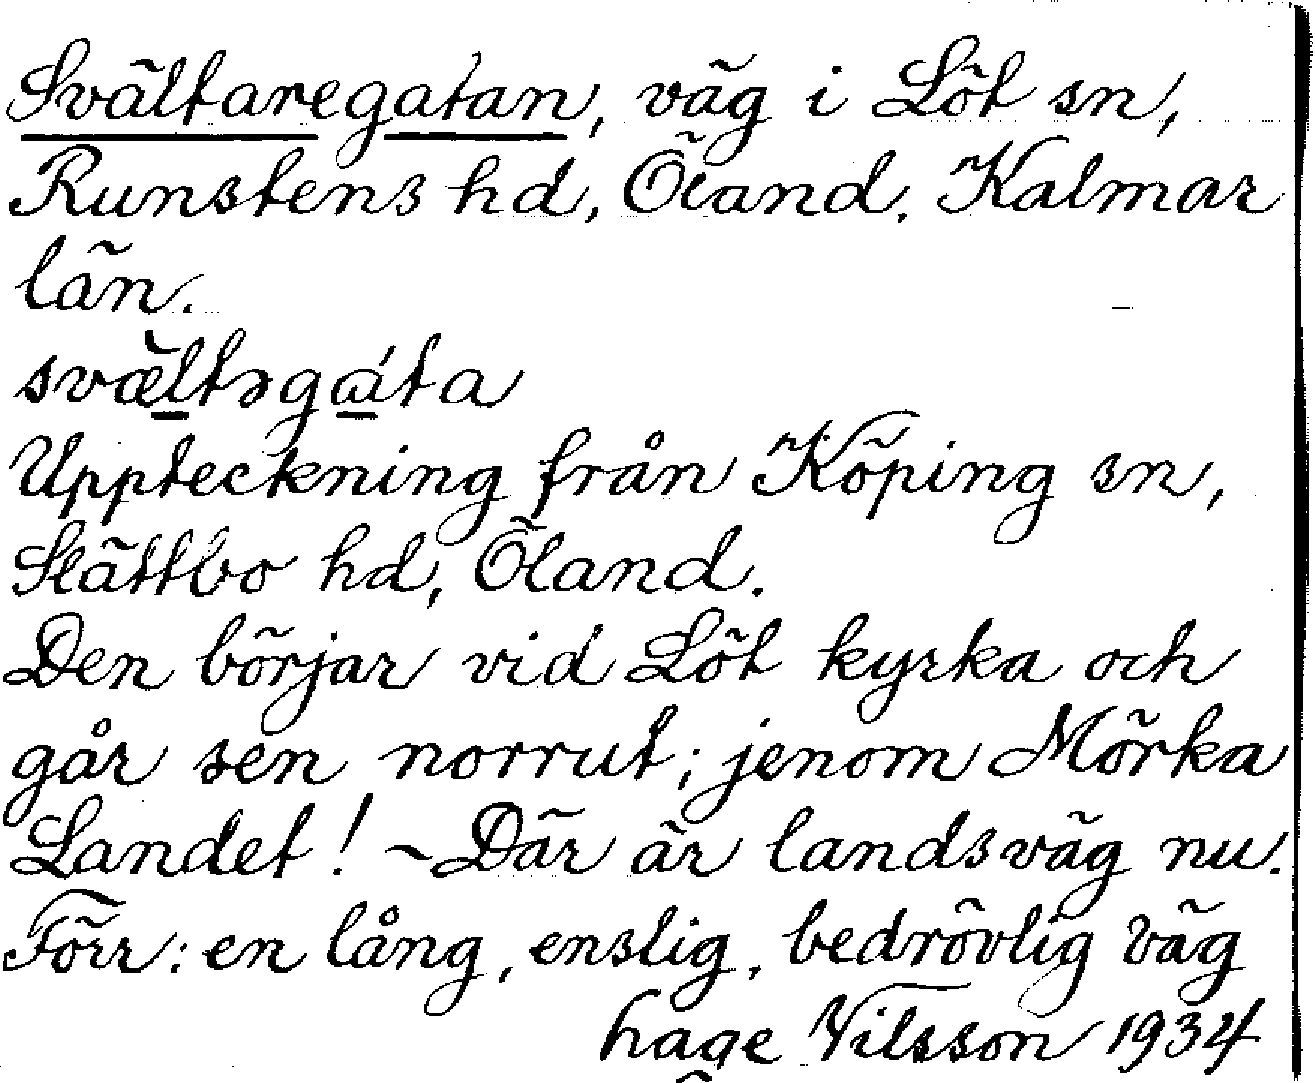 Svältaregatan, väg i Löt sn,
Runstens hd, Öland. Kalmar
län.
svæltəgata
Uppteckning från Köping sn,
Slättbo hd, Öland.
Den börjar vid Löt kyrka och
går sen norrut; jenom Mörka
Landet! - Där är landsväg nu.
Förr: en lång, enslig, bedrövlig väg
hage Nilsson 1934